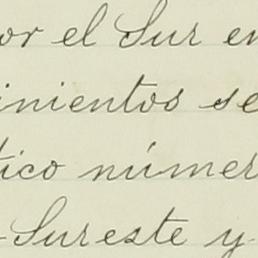 or el Sur en
inientos se
tico númer
-Sureste y